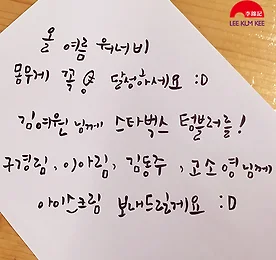 李錦記
LEE KUM KEE
올 여름 워너비
몸무게 꼭 달성하세요 :D
김여원님께 스타벅스 텀블러를!
구경림, 이아림, 김동주, 고소영님께
아이스크림 보내드릴게요 :D